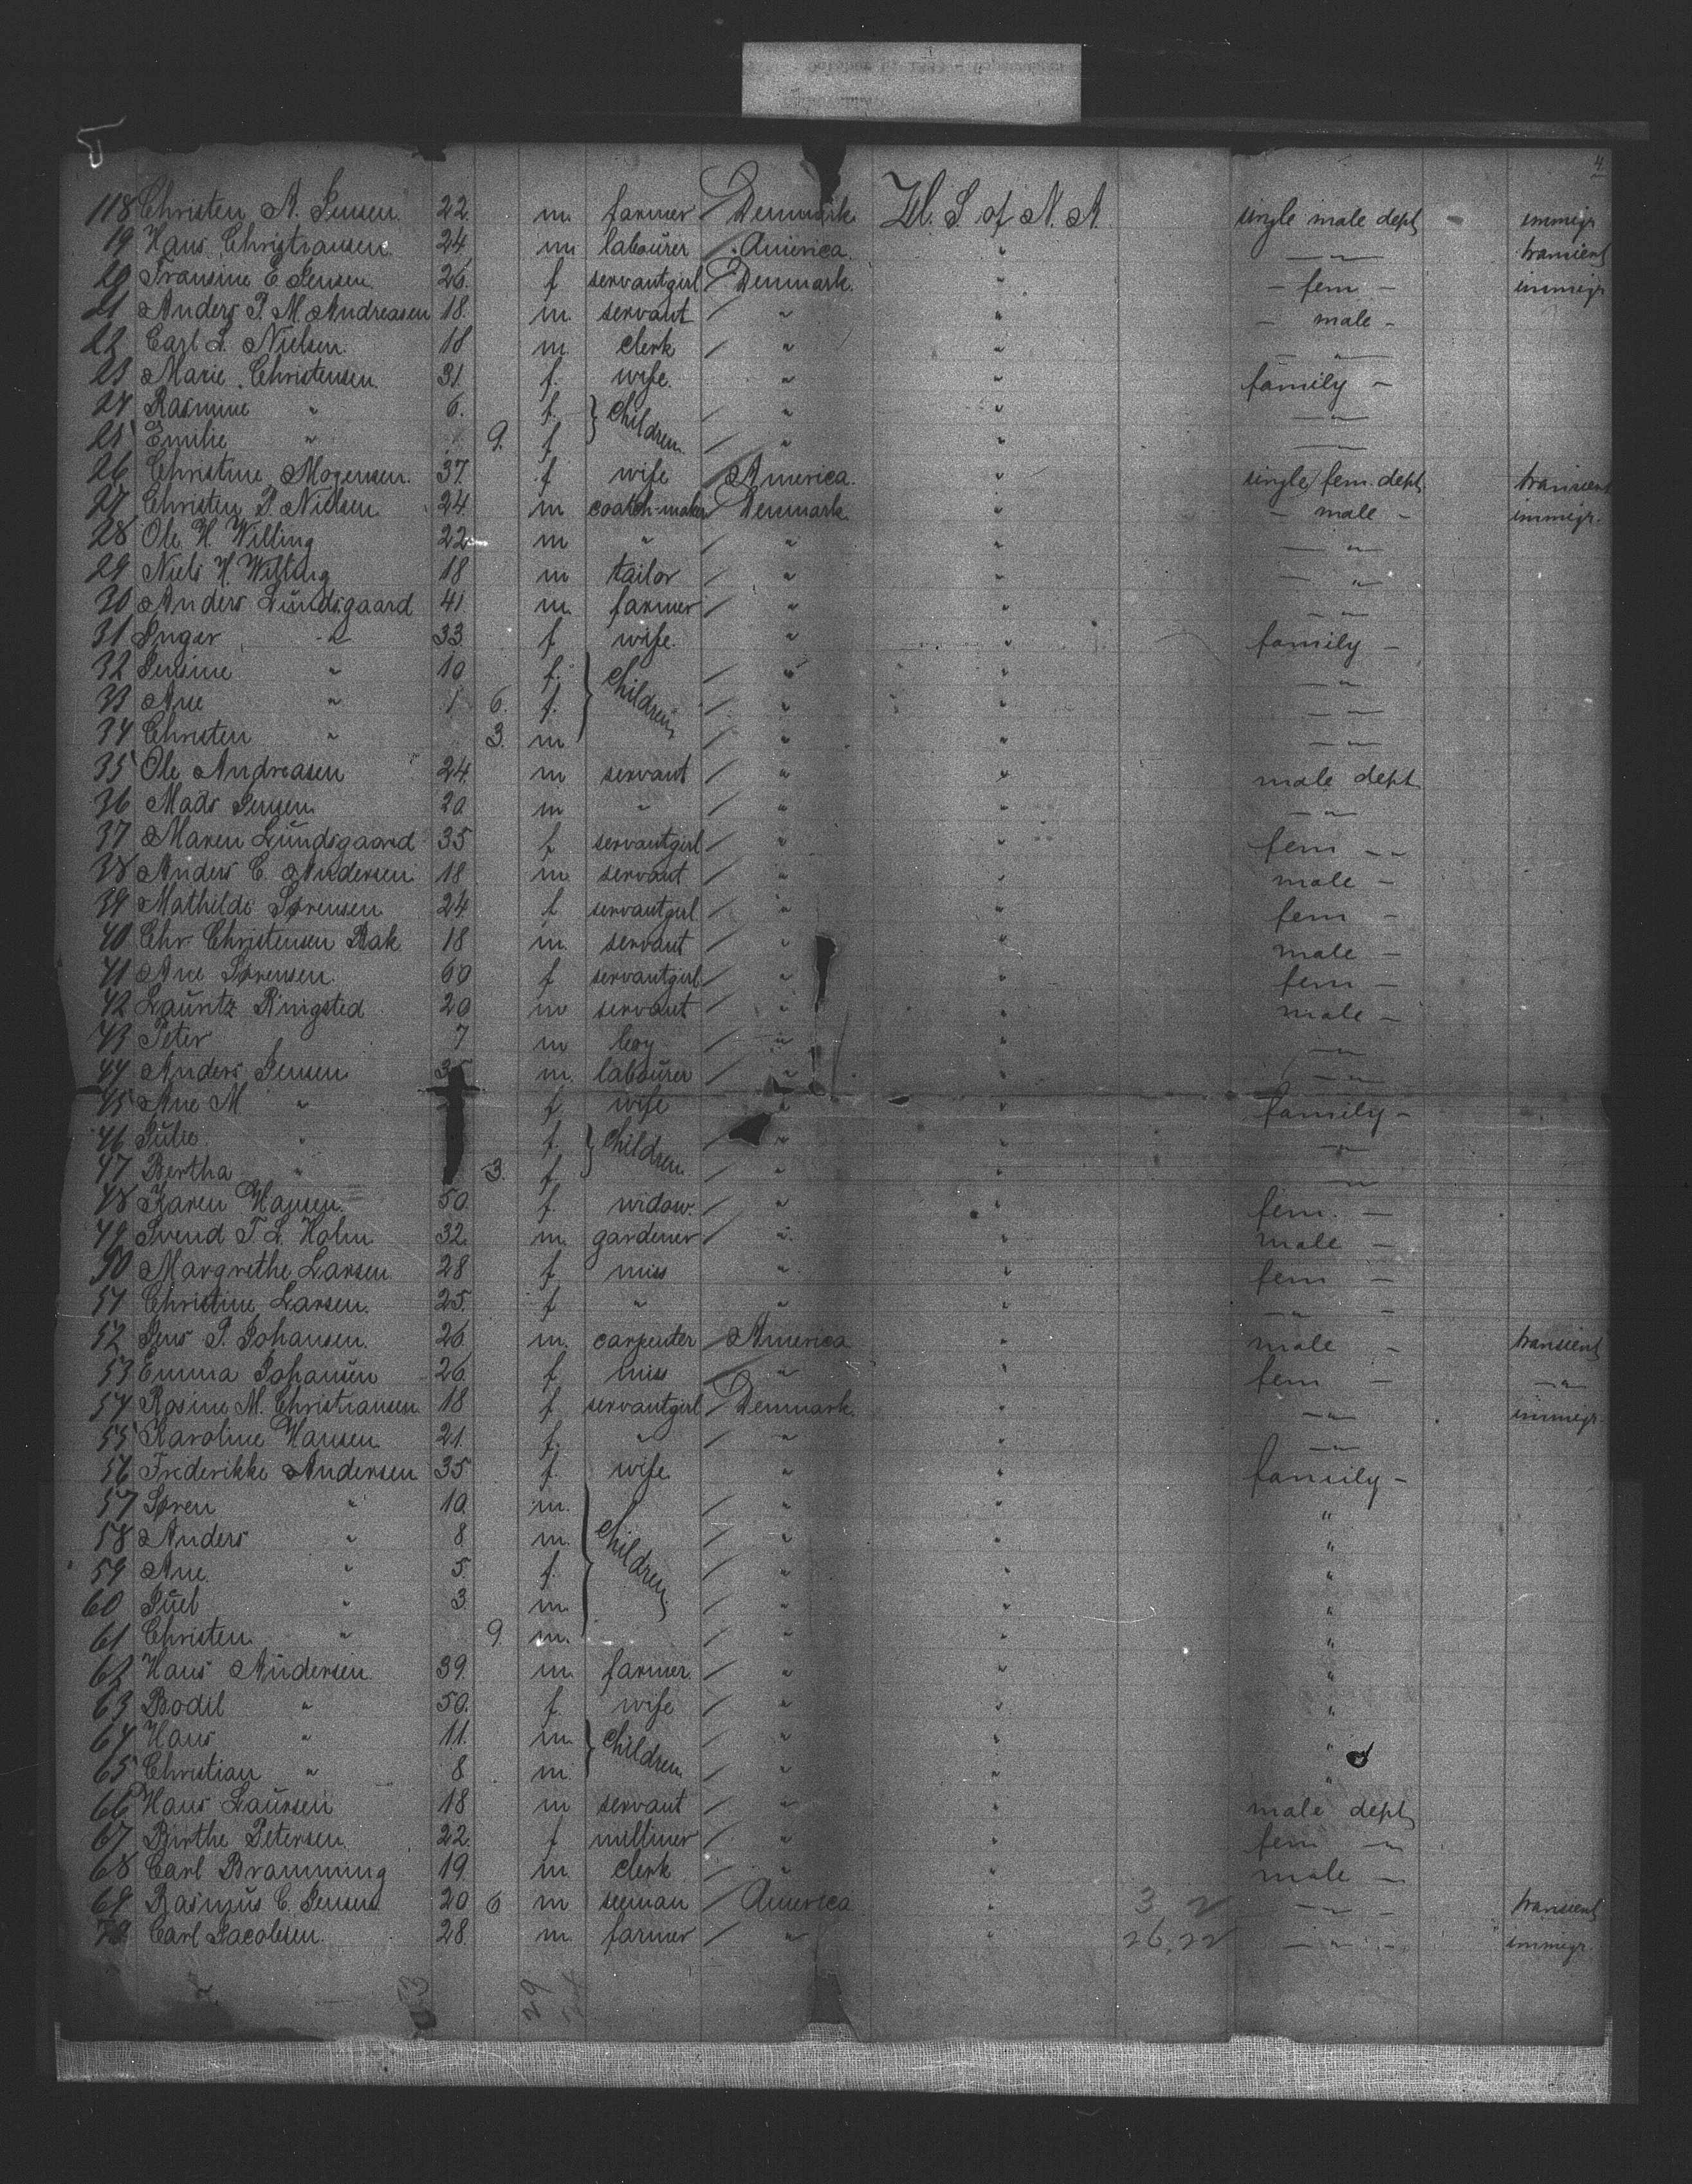 4
118 Christen A. Jensen 22. m. farmer / Denmark U. S. of N. A. single male dept immigr
19 Hans Christiansen. 24. m labourer / America. " — " — transient
20 Fransine E Jensen 26. f servantgirl / Denmark. " — fem — immigr
21 Anders P. M. Andreasen 18. m. servant / " " — male —
22 Carl L. Nielsen. 18 m clerk / " " — " —
23 Marie Christensen. 31. f. wife. " " family —
24 Rasmine " 6. f. } children / " " — " —
25 Emilie " 9. f / " " —
26 Christine Mogensen. 37. f wife / America. " single fem. dept transient
27 Christen P. Nielsen 24. m coatch-maker Denmark. " — male — immigr.
28 Ole H. Willing 22 m " / " " — " —
29 Niels H. Willing 18 m tailor / " " — " —
30 Anders Lundsgaard 41. m. farmer / " " — " —
31 Inger " 33 f wife. " " family —
32 Jensine " 10 f. } children / " " — " —
33 Ane " 1 6. f. / " " — " —
34 Christen " 3. m / " " — " —
35 Ole Andreasen 24. m servant / " " male dept
36 Mads Jensen 20. m " / " " — " —
37 Maren Lundsgaard 35 f servantgirl " " fem — —
38 Anders C. Andersen 18 m servant / " " male —
39 Mathilde Sørensen 24 f servantgirl / " " fem —
40 Chr. Christensen Bak 18 m. servant / " " male —
41 Ane Sørensen. 60 f servantgirl / " " fem —
42 Lauritz Ringsted 20 m servant / " " male —
43 Peter 7 m boy / " " — " —
44 Anders Jensen 35 m. labourer / " " — " —
45 Ane M " f wife " " family —
46 Julie " f. } children / " " — " —
47 Bertha " 3. f / " " — " —
48 Karen Hansen. 50. f. widow. / " " fem. —
49 Svend T. L. Holm 32. m. gardener / " " male —
50 Margrethe Larsen 28 f miss " " fem —
51 Christine Larsen. 25. f " " " — " —
52 Jens P. Johansen. 26 m. carpenter / America " male — transient
53 Emma Johansen 26. f. miss / " " fem — — " —
54 Rosine M. Christiansen 18 f. servantgirl / Denmark. " — " — immigr.
55 Karoline Hansen 21. f. " / " " — " —
56 Frederikke Andersen 35 f. wife. " " family —
57 Søren " 10. m. } children / " " "
58 Anders " 8 m. / " " "
59 Ane. " 5. f. / " " "
60 Juel " 3. m. / " " "
61 Christen " 9 m. / " " "
62 Hans Andersen 39. m. farmer. / " " "
63 Bodil " 50. f. wife / " " "
64 Hans " 11. m. } children / " " "
65 Christian " 8 m. / " " "
66 Hans Laursen 18 m servant / " " male dept
67 Birthe Petersen. 22. f milliner / " " fem — "
68 Carl Bramming 19. m. clerk / " " male —
69 Rasmus C. Jensen 20 6 m seeman / America " 3 2 — " — transient
70 Carl Jacobsen. 28. m. farmer / " " 26,22 — " — immigr.
29
24